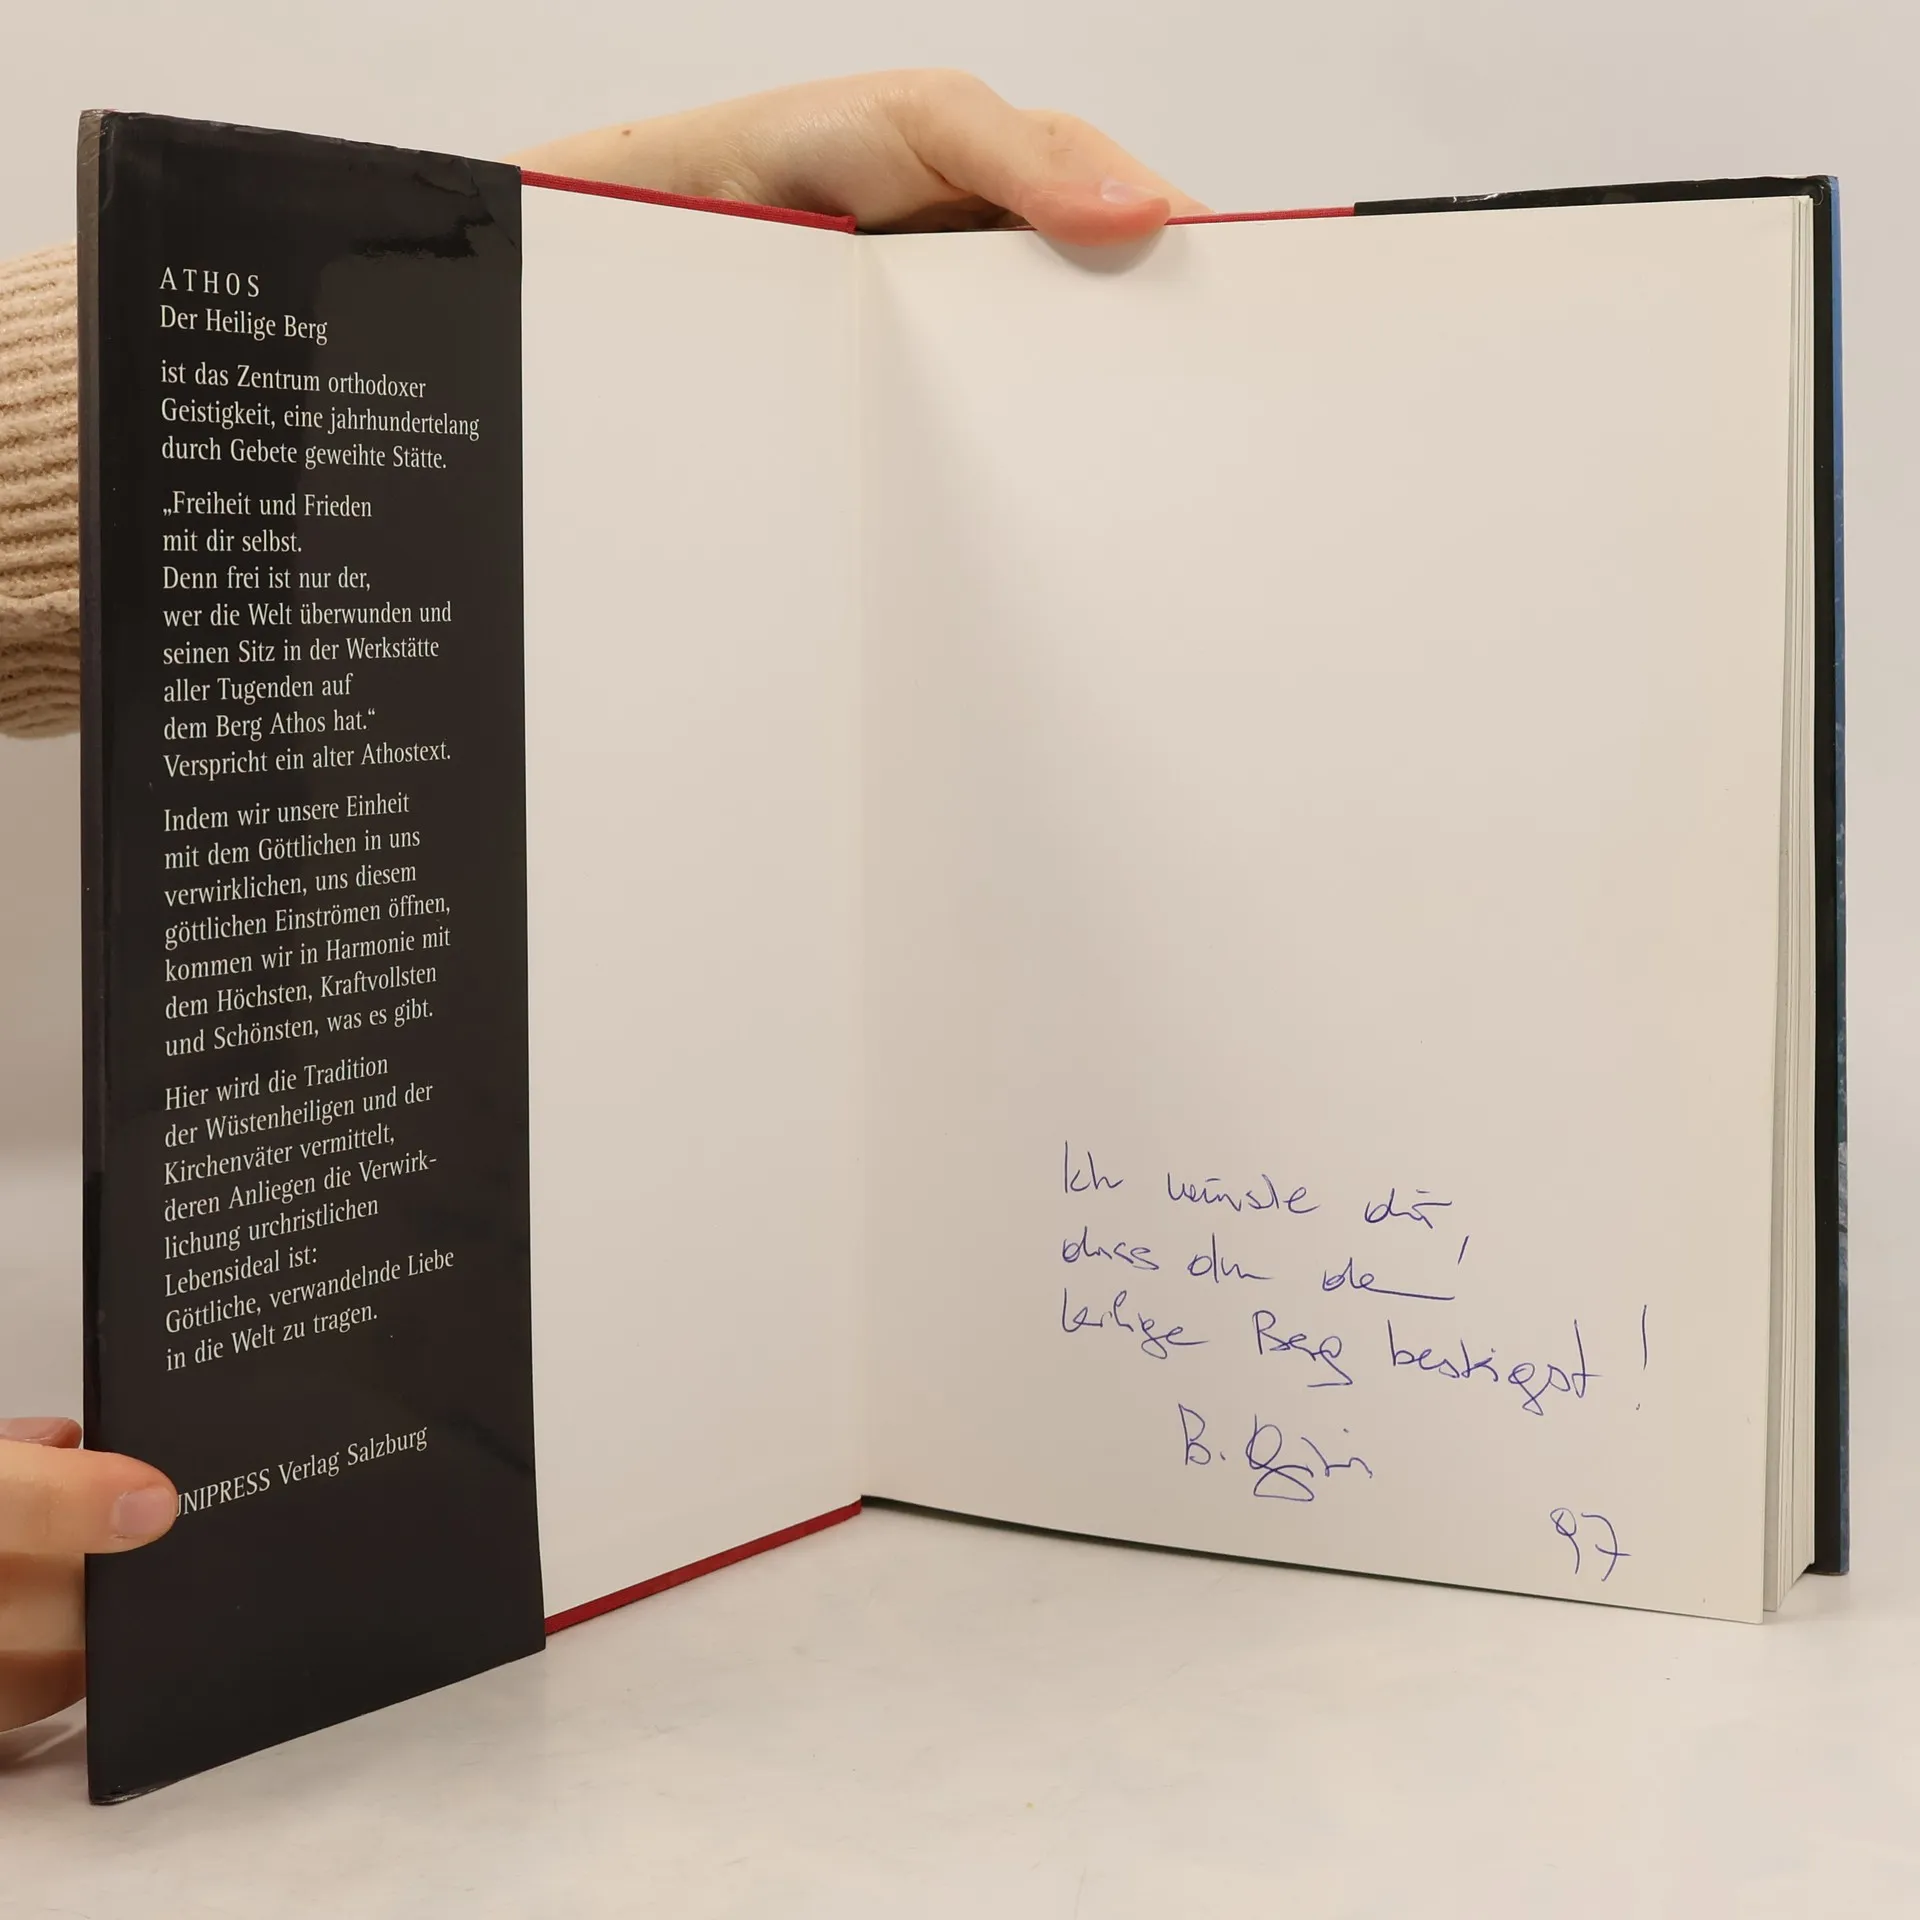 ATHOS
Der Heilige Berg
ist das Zentrum orthodoxer
Geistigkeit, eine jahrhundertelang
durch Gebete geweihte Stätte.
„Freiheit und Frieden
mit dir selbst.
Denn frei ist nur der,
wer die Welt überwunden und
seinen Sitz in der Werkstätte
aller Tugenden auf
dem Berg Athos hat.“
Verspricht ein alter Athostext.
Indem wir unsere Einheit
mit dem Göttlichen in uns
verwirklichen, uns diesem
göttlichen Einströmen öffnen,
kommen wir in Harmonie mit
dem Höchsten, Kraftvollsten
und Schönsten, was es gibt.
Hier wird die Tradition
der Wüstenheiligen und der
Kirchenväter vermittelt,
deren Anliegen die Verwirk-
lichung urchristlichen
Lebensideal ist:
Göttliche, verwandelnde Liebe
in die Welt zu tragen.
UNIPRESS Verlag Salzburg
Ich wünsche dir,
dass du den
heilige Berg besteigst!
B.
97